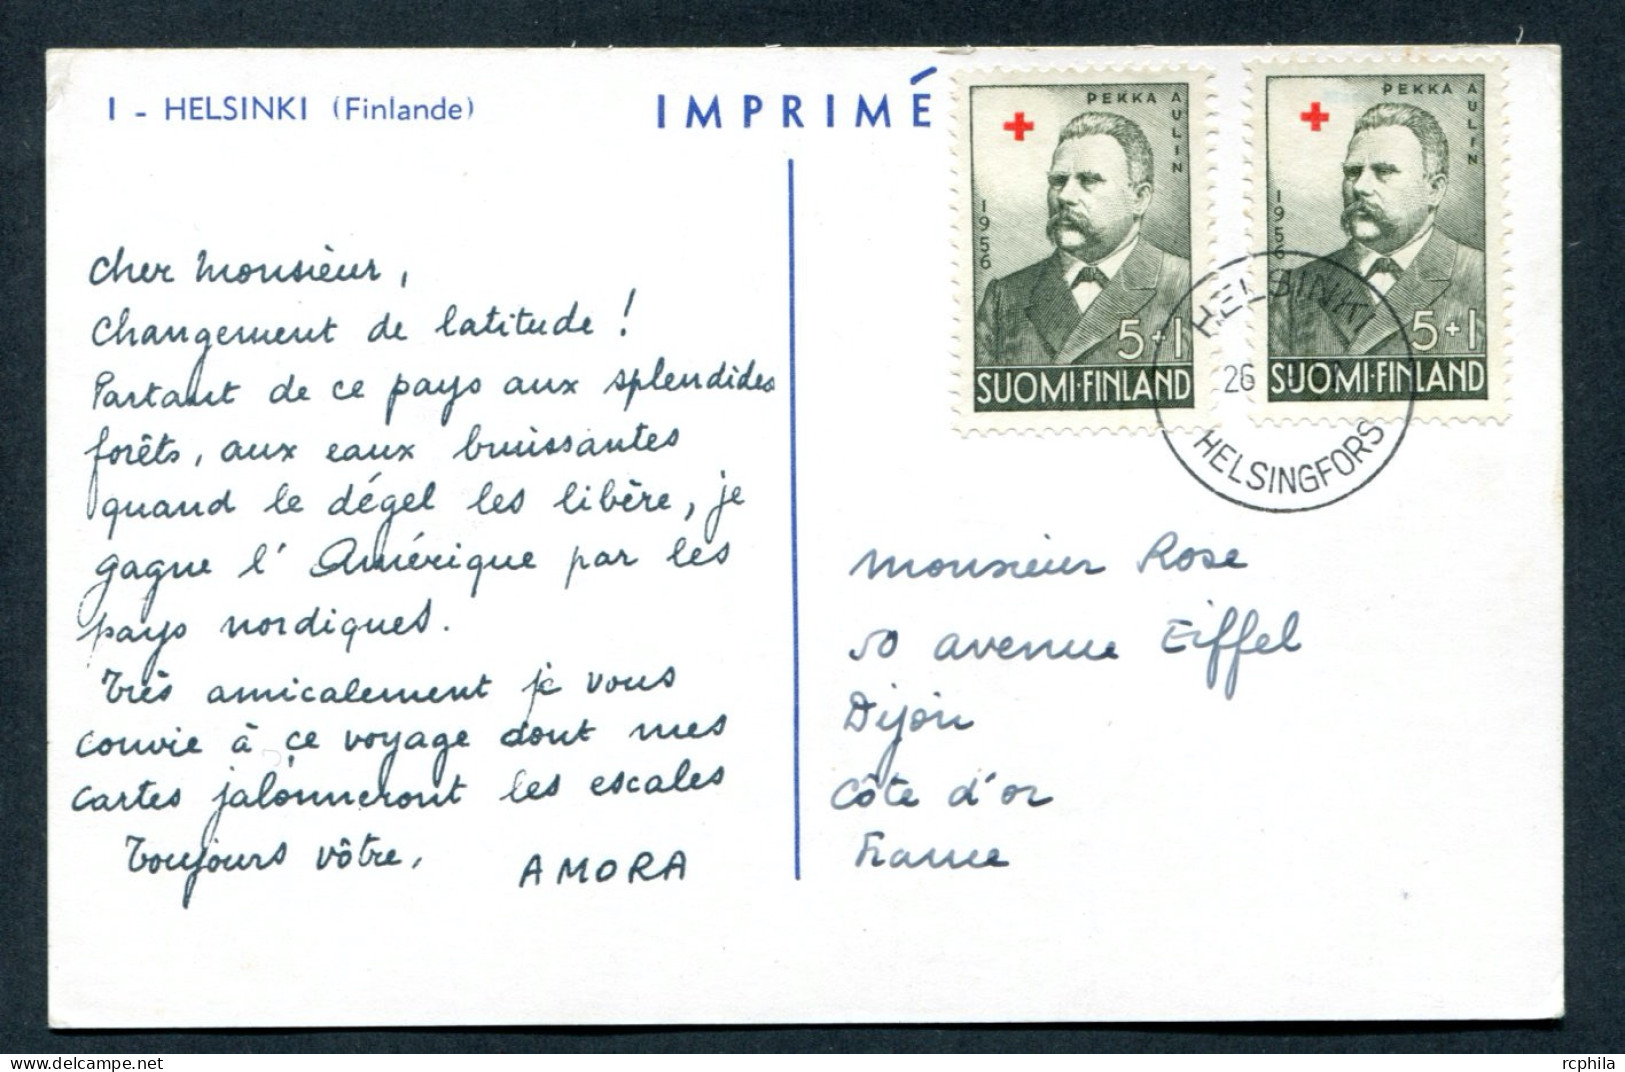 I - HELSINKI (Finlande)
IMPRIMÉ
PEKKA AULIN
1956
5+1
SUOMI·FINLAND
PEKKA AULIN
1956
5+1
SUOMI·FINLAND
HELSINKI
26
HELSINGFORS
Cher Monsieur,
Changement de latitude !
Partant de ce pays aux splendides
forêts, aux eaux bruissantes
quand le dégel les libère, je
gagne l'Amérique par les
pays nordiques.
Très amicalement je vous
convie à ce voyage dont mes
cartes jalonneront les escales
Toujours vôtre,
AMORA
Monsieur Rose
50 avenue Eiffel
Dijon
Côte d'or
France
rcphila